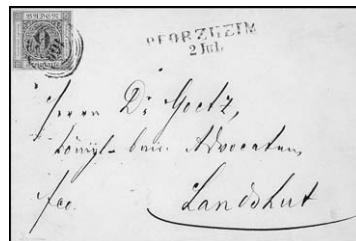 BADEN
9
PFORZHEIM
2 JUL
Herrn Dr. Goetz,
königl. bair. Advocaten,
fco.
Landshut